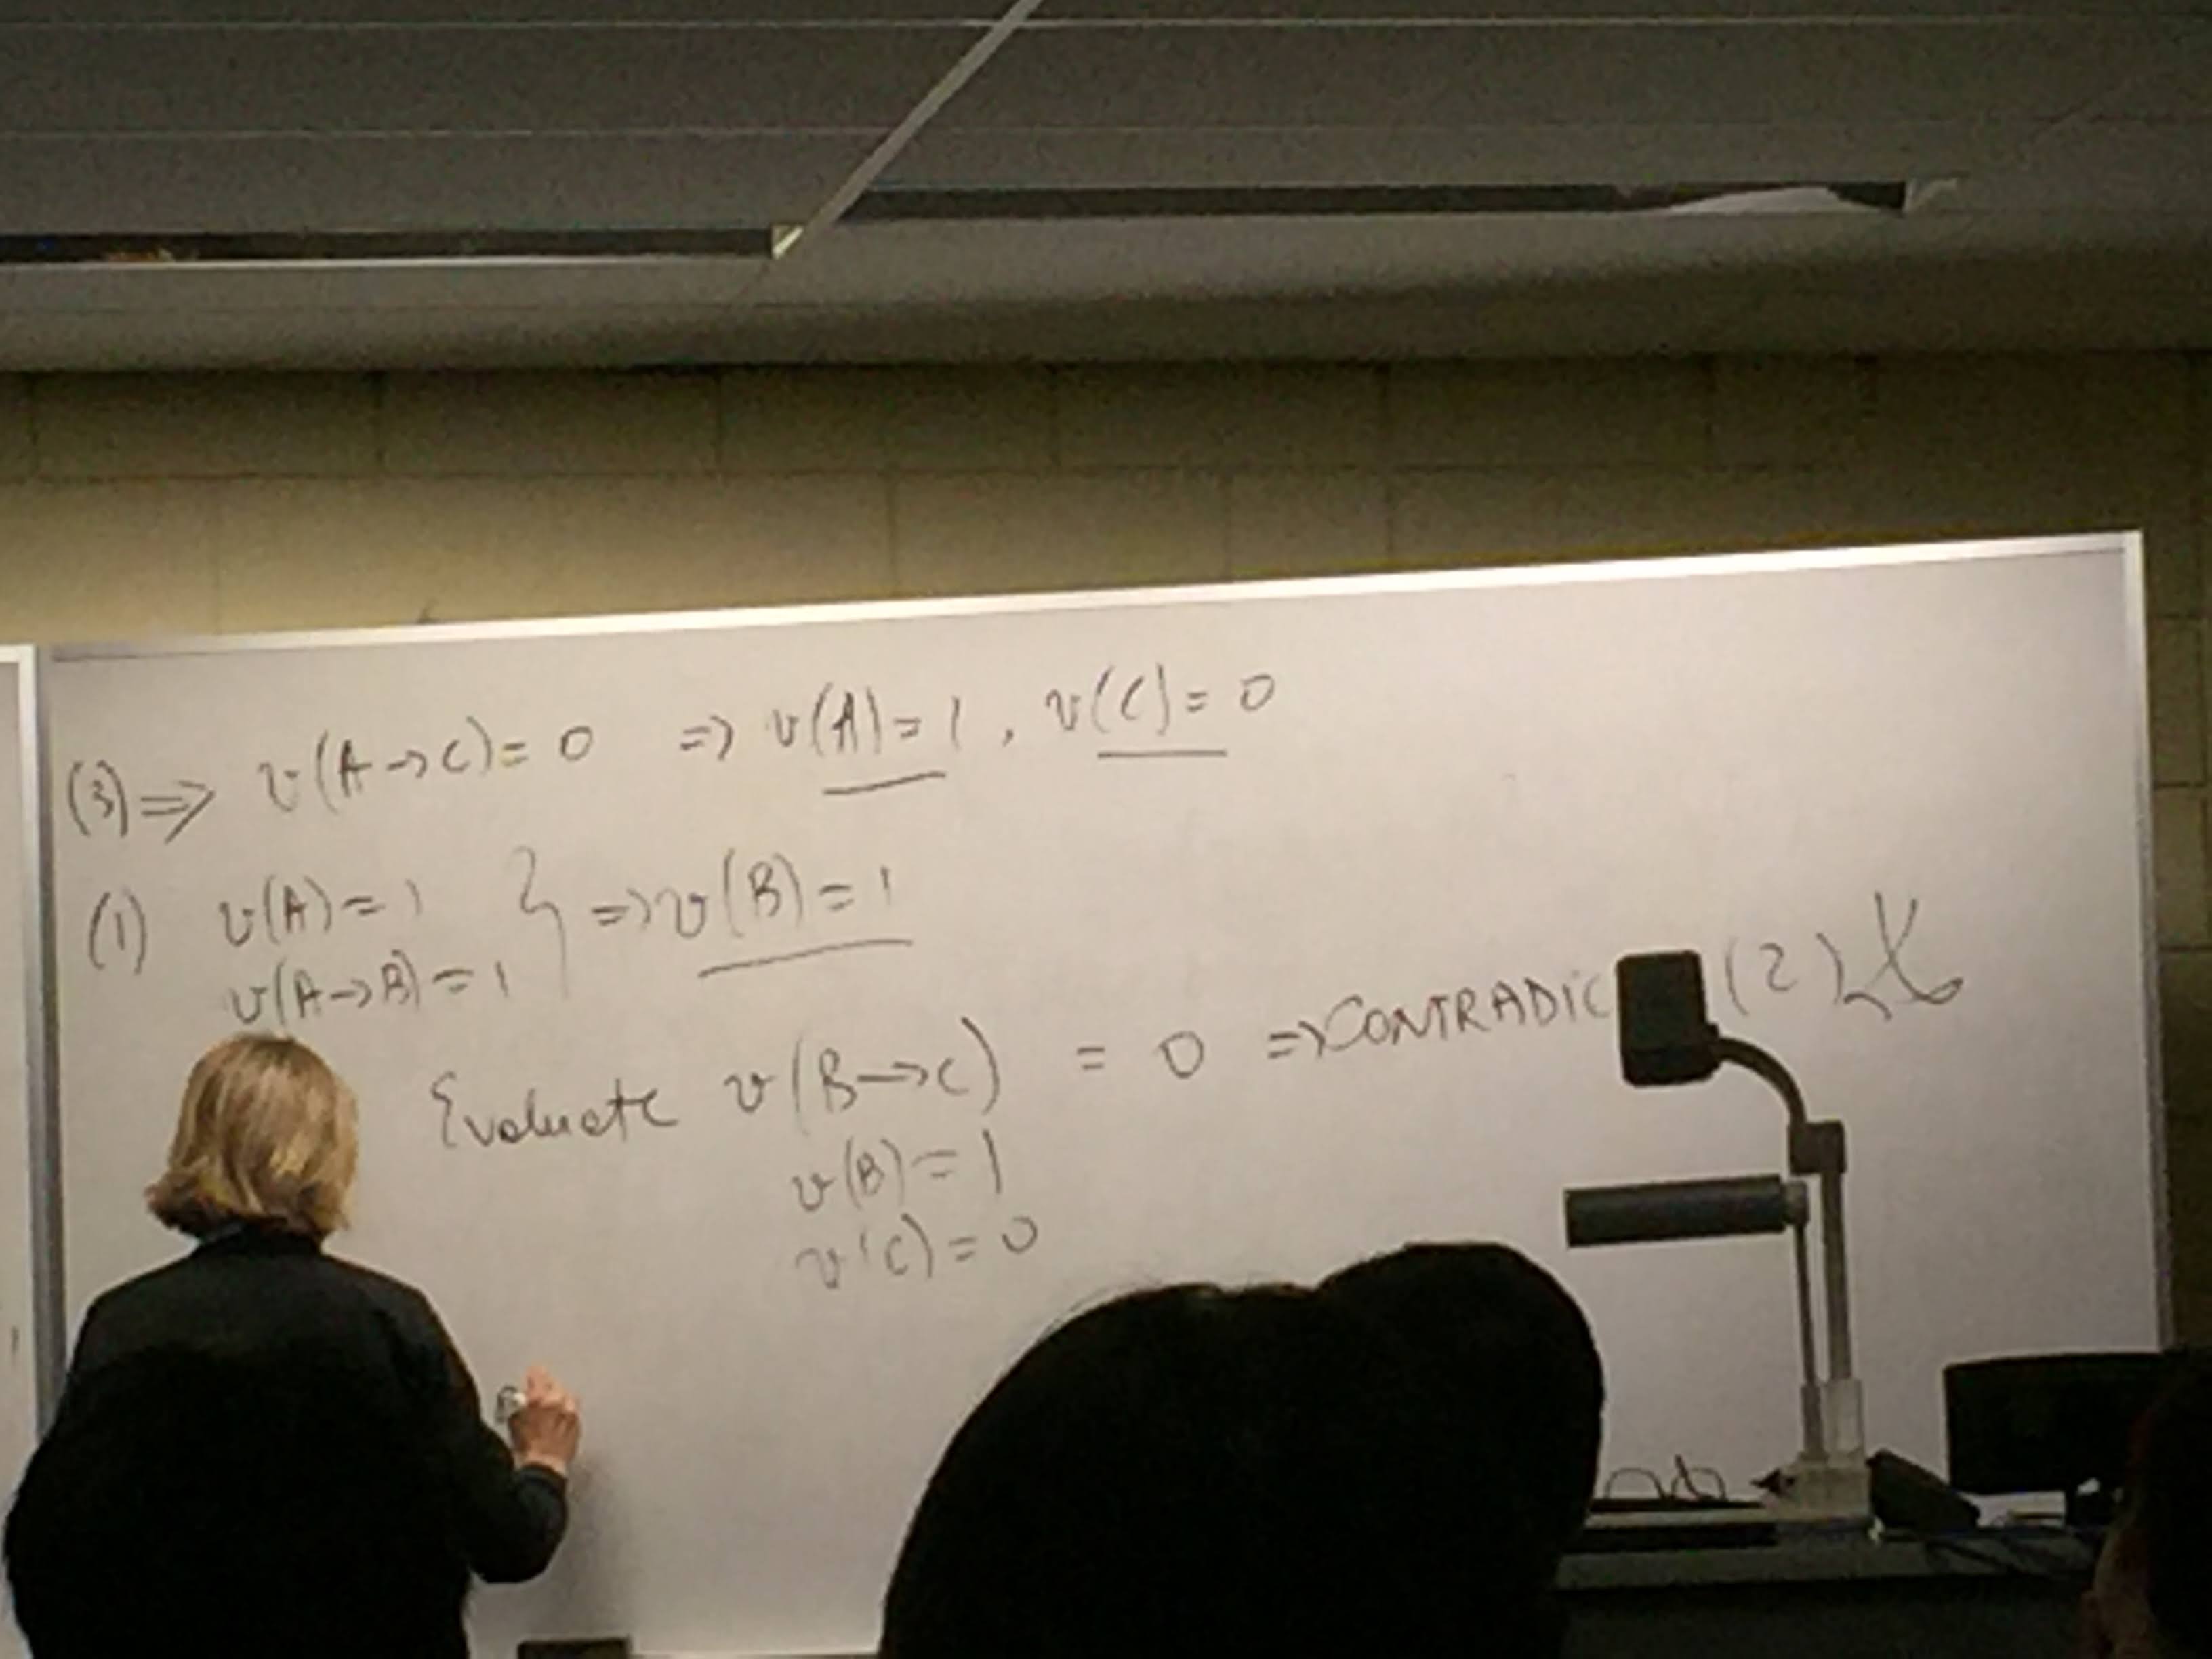 (3) => v(A→C) = 0 => v(A) = 1, v(C) = 0
(1) v(A) = 1 } => v(B) = 1
v(A→B) = 1
Evaluate v(B→C) = 0 => CONTRADIC (2)
v(B) = 1
v(C) = 0
B